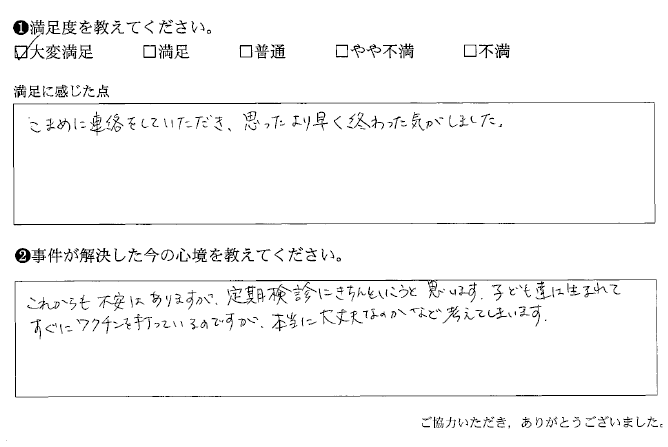 ❶満足度を教えてください。
☑大変満足 □満足 □普通 □やや不満 □不満
満足に感じた点
こまめに連絡をしていただき、思ったより早く終わった気がしました。
❷事件が解決した今の心境を教えてください。
これからも不安はありますが、定期検診にきちんといこうと思います。子ども達に生まれて
すぐにワクチンを打っているのですが、本当に大丈夫なのかなど考えてしまいます。
ご協力いただき，ありがとうございました。